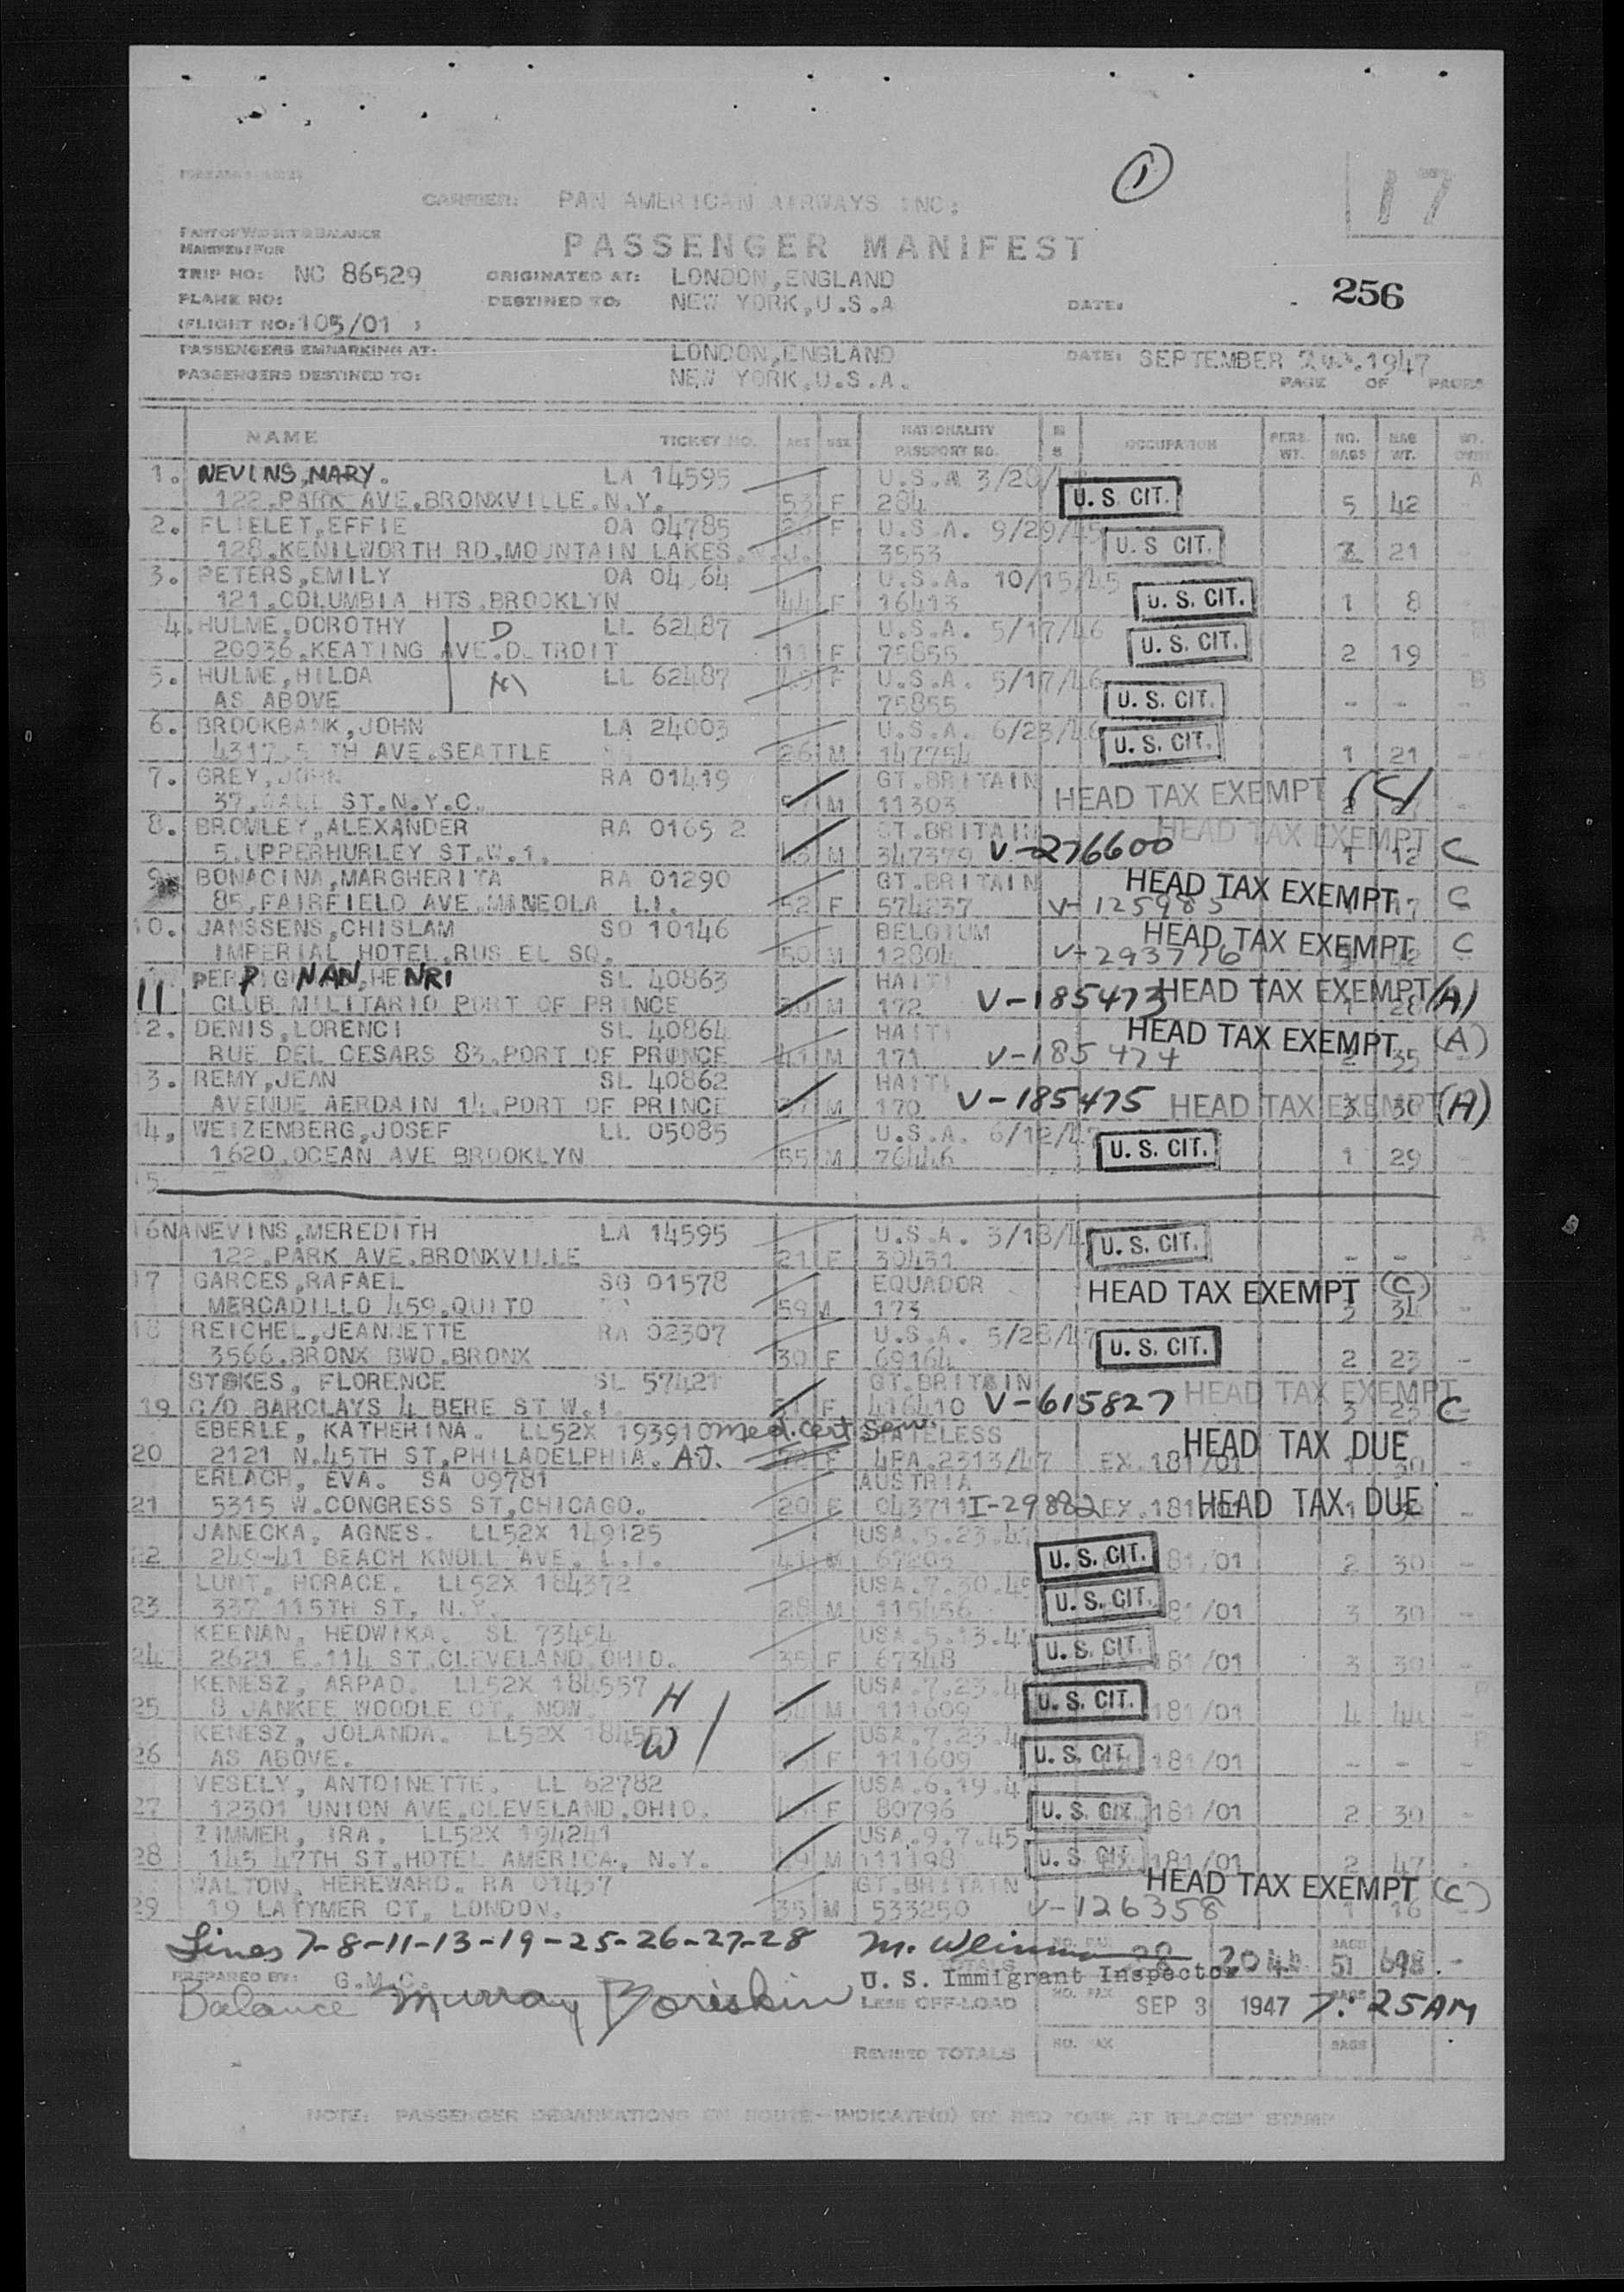 ①
17
CARRIER: PAN AMERICAN AIRWAYS INC:
PART OF WEIGHT & BALANCE
MANIFEST FOR
PASSENGER MANIFEST
TRIP NO: NC 86529 ORIGINATED AT: LONDON,ENGLAND
256
PLANE NO: DESTINED TO, NEW YORK,U.S.A DATE:
(FLIGHT NO: 105/01 )
PASSENGERS EMBARKING AT: LONDON,ENGLAND DATE: SEPTEMBER 1947
PASSENGERS DESTINED TO: NEW YORK,U.S.A. PAGE OF PAGES
NAME TICKET NO. AGE SEX NATIONALITY PASSPORT NO. M S OCCUPATION PERS. WT. NO. BAGS BAG WT. WT.
1. NEVINS,MARY. LA 14595 U.S.A 3/20/ A
122,PARK AVE,BRONXVILLE.N.Y. 53 F 284 U.S. CIT. 5 42 -
2. FLIELET,EFFIE OA 04785 F U.S.A. 9/29/45
128,KENILWORTH RD,MOUNTAIN LAKES.N.J. 3553 U.S CIT. 21 -
3. PETERS,EMILY OA 04 64 U.S.A. 10/15/45
121,COLUMBIA HTS,BROOKLYN 44 F 16413 U.S. CIT. 1 8 -
4. HULME,DOROTHY D LL 62487 U.S.A. 5/17/46 B
20036,KEATING AVE.DETROIT 11 F 75855 U.S. CIT. 2 19 -
5. HULME,HILDA M LL 62487 F U.S.A. 5/17/46 B
AS ABOVE 75855 U.S. CIT. - - -
6. BROOKBANK,JOHN LA 24003 U.S.A. 6/23/46
4317,5 TH AVE.SEATTLE 26 M 147754 U.S. CIT. 1 21 -
7. GREY,JOHN RA 01419 GT.BRITAIN
37,WALL ST.N.Y.C. M 11303 HEAD TAX EXEMPT (C) 2 -
8. BROMLEY,ALEXANDER RA 0165 2 GT.BRITAIN HEAD TAX EXEMPT
5,UPPERHURLEY ST.W.1. M 347379 V-276600 1 12 C
9. BONACINA,MARGHERITA RA 01290 GT.BRITAIN HEAD TAX EXEMPT C
85,FAIRFIELD AVE,MINEOLA L.I. 52 F 574237 V-125985 17
10. JANSSENS,CHISLAM SO 10146 BELGIUM HEAD TAX EXEMPT C
IMPERIAL HOTEL,RUS EL SQ. 50 M 12804 V-293776
11 PERPIGNAN,HENRI SL 40863 HAITI HEAD TAX EXEMPT (A)
CLUB MILITARIO PORT OF PRINCE M 172 V-185473 1 28
12. DENIS,LORENCI SL 40864 HAITI HEAD TAX EXEMPT (A)
RUE DEL CESARS 83,PORT OF PRINCE 41 M 171 V-185474 2 35 -
13. REMY,JEAN SL 40862 HAITI
AVENUE AERDAIN 14,PORT OF PRINCE M 170 V-185475 HEAD TAX EXEMPT (A) 3 30
14, WEIZENBERG,JOSEF LL 05085 U.S.A. 6/12/47
1620,OCEAN AVE BROOKLYN 55 M 76446 U.S. CIT. 1 29 -
15
16 NA NEVINS,MEREDITH LA 14595 U.S.A. 3/18/4 A
122,PARK AVE,BRONXVILLE 21 F 30431 U.S. CIT. - - -
17 GARCES,RAFAEL SG 01578 EQUADOR HEAD TAX EXEMPT (C)
MERCADILLO 459,QUITO 59 M 173 3 34 -
18 REICHEL,JEANNETTE RA 02307 U.S.A. 5/28/47
3566,BRONX BWD,BRONX 30 F 69164 U.S. CIT. 2 23 -
STOKES, FLORENCE SL 57421 GT.BRITAIN HEAD TAX EXEMPT
19 C/O BARCLAYS 4 BERE ST W.1. F 416410 V-615827 3 23 C
EBERLE, KATHERINA. LL52X 193910 med. cert STATELESS
20 2121 N.45TH ST,PHILADELPHIA. F 4PA.2313/47 EX.181/01 HEAD TAX DUE 1 30 -
ERLACH, EVA. SA 09781 AUSTRIA
21 5315 W.CONGRESS ST,CHICAGO. 20 F 043711 I-29882 EX.181/ HEAD TAX DUE 1 -
JANECKA, AGNES. LL52X 149125 USA.5.23.4
22 249-41 BEACH KNOLL AVE, L.I. 41 M 67205 U.S. CIT. 81/01 2 30 -
LUNT, HORACE. LL52X 184372 USA.7.30.4
23 337 115TH ST, N.Y. 28 M 115456 U.S. CIT. 81/01 3 30 -
KEENAN, HEDWIKA. SL 73454 USA.5.13.4
24 2621 E.114 ST,CLEVELAND,OHIO. 35 F 67348 U.S. CIT. 181/01 3 30 -
KENESZ, ARPAD. LL52X 184557 H USA.7.23.4
25 8 JANKEE WOODLE CT, NOW. M 111609 U.S. CIT. 181/01 4 44 -
KENESZ, JOLANDA. LL52X 1845 W USA.7.23.4
26 AS ABOVE. F 111609 U.S. CIT. 181/01 - - -
VESELY, ANTOINETTE. LL 62782 USA.6.19.4
27 12301 UNION AVE,CLEVELAND,OHIO. F 80796 U.S. CIT. 181/01 2 30 -
ZIMMER, IRA. LL52X 194241 USA.9.7.45
28 145 47TH ST,HOTEL AMERICA, N.Y. M 111198 U.S. CIT. 181/01 2 47 -
WALTON, HEREWARD. RA 01457 GT.BRITAIN HEAD TAX EXEMPT (C)
29 19 LATYMER CT, LONDON. 35 M 533250 V-126358 1 16
Lines 7-8-11-13-19-25-26-27-28 NO. PAX 28 BAGS 51 698 -
PREPARED BY: G.M.C. TOTALS U.S. Immigrant Inspector
Balance Murray Boriskin LESS OFF-LOAD NO. PAX SEP 3 1947 BAGS 7:25AM
REVISED TOTALS NO. PAX BAGS
NOTE: PASSENGER DEBARKATIONS EN ROUTE-INDICATE(D) BY RED "OFF AT (PLACE)" STAMP